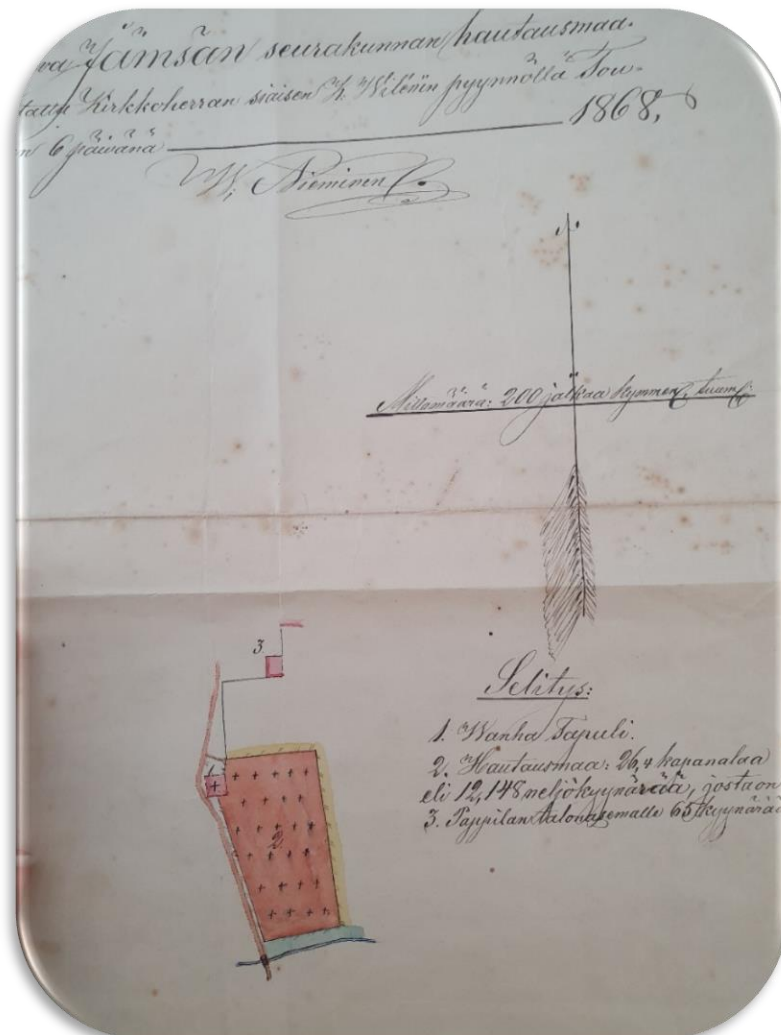 va Jämsän seurakunnan hautausmaa.
Kirkkoherran siaisen K. Wilénin pyynnöllä Tou-
n 6 päivänä 1868,
W. Nieminen
N
Mittamäärä: 200 jalkaa kymmen
3.
Selitys:
1. Wanha Tapuli.
2. Hautausmaa: 26,4 kapanalaa
eli 12,148 neljökyynärää, josta on
3. Pappilan talonasemalle 65 kyynärää
1.
2.